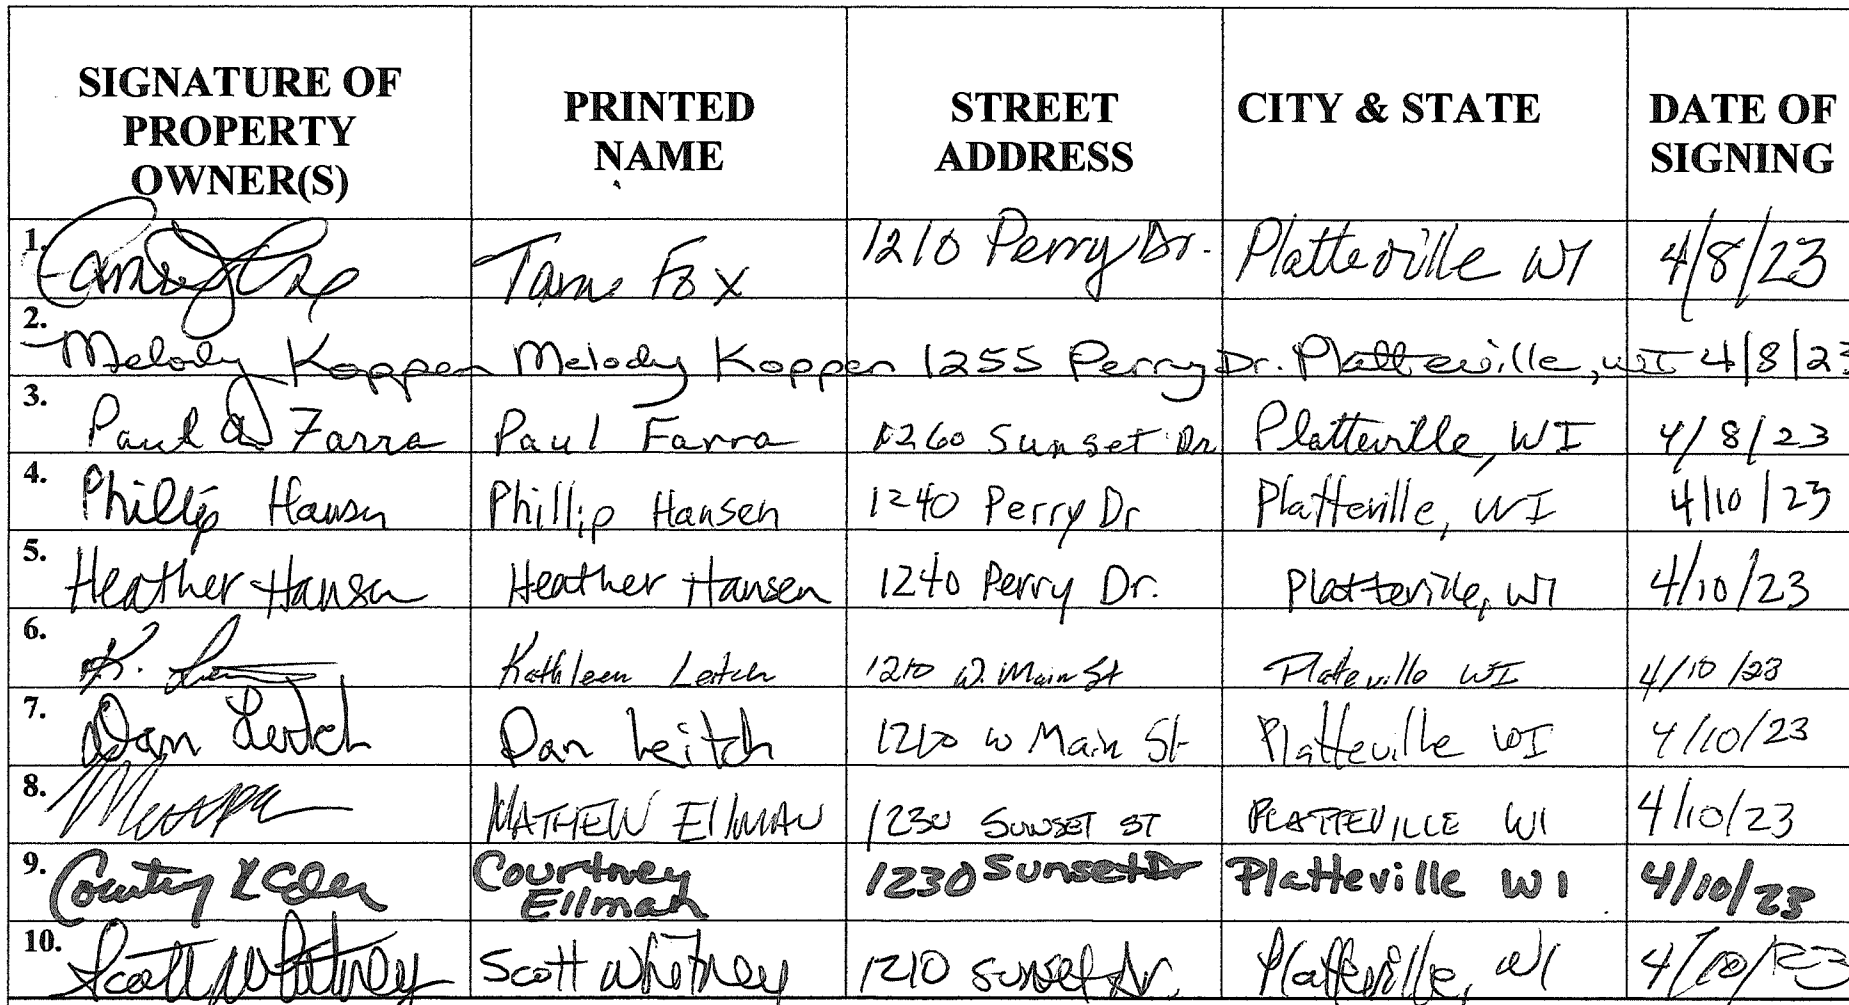 SIGNATURE OF PROPERTY OWNER(S) PRINTED NAME STREET ADDRESS CITY & STATE DATE OF SIGNING
1. Fox 1210 Perry Dr. Platteville WI 4/8/23
2. Melody Koppen Melody Koppen 1255 Perry Dr. Platteville, WI 4/8/23
3. Paul A Farra Paul Farra 1260 Sunset Dr Platteville, WI 4/8/23
4. Phillip Hansen Phillip Hansen 1240 Perry Dr Platteville, WI 4/10/23
5. Heather Hansen Heather Hansen 1240 Perry Dr. Platteville, WI 4/10/23
6. K. Kathleen Leitch 1210 W. Main St Platteville WI 4/10/23
7. Dan Leitch Dan Leitch 1210 W Main St Platteville WI 4/10/23
8. MATHEW Ellman 1230 SUNSET ST PLATTEVILLE WI 4/10/23
9. Courtney Courtney Ellman 1230 Sunset Dr Platteville WI 4/10/23
10. Scott Whitney Scott Whitney 1210 Sunset Dr. Platteville, WI 4/10/23